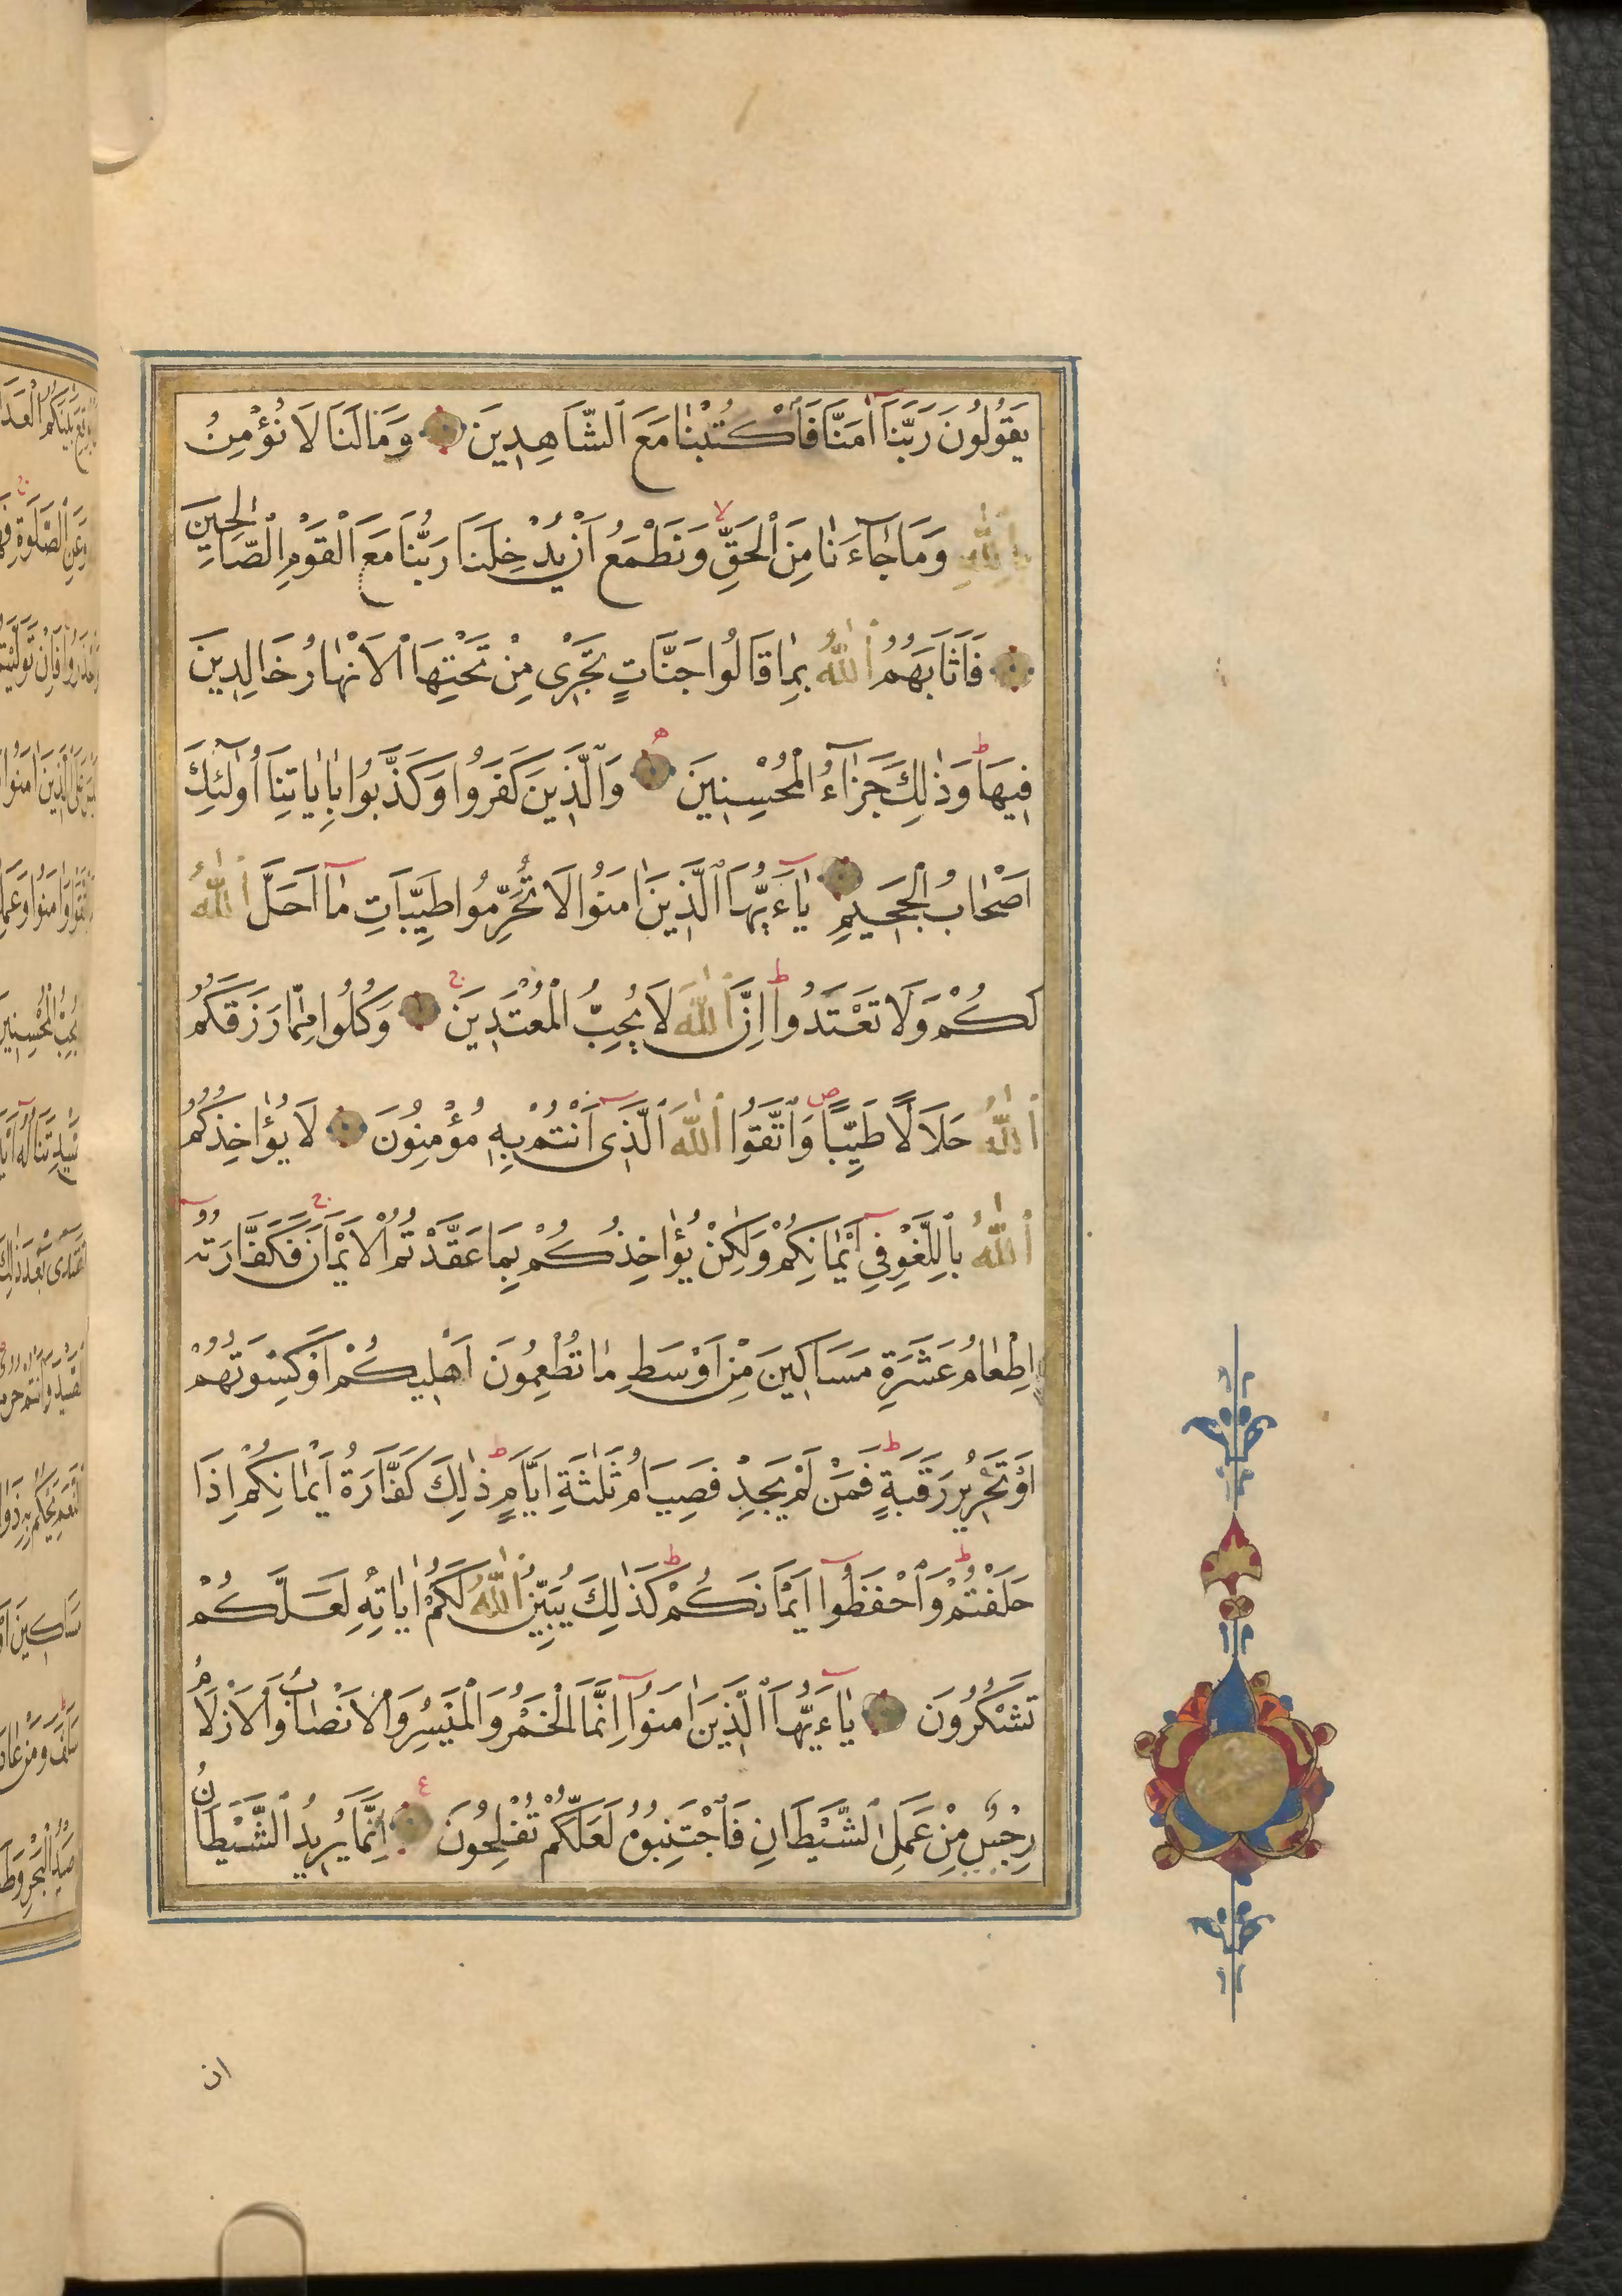 يَقُولُونَ رَبَّنَا اٰمَنَّا فَاكْتُبْنَا مَعَ الشَّاهِدِينَ وَمَا لَنَا لَا نُؤْمِنُ
بِاللّٰهِ وَمَا جَاءَنَا مِنَ الْحَقِّ وَنَطْمَعُ اَنْ يُدْخِلَنَا رَبُّنَا مَعَ الْقَوْمِ الصَّالِحِينَ
فَاَثَابَهُمُ اللّٰهُ بِمَا قَالُوا جَنَّاتٍ تَجْرِى مِنْ تَحْتِهَا الْاَنْهَارُ خَالِدِينَ
فِيهَا وَذٰلِكَ جَزَاءُ الْمُحْسِنِينَ وَالَّذِينَ كَفَرُوا وَكَذَّبُوا بِاٰيَاتِنَا اُولٰئِكَ
اَصْحَابُ الْجَحِيمِ يَاءَيُّهَا الَّذِينَ اٰمَنُوا لَا تُحَرِّمُوا طَيِّبَاتِ مَا اَحَلَّ اللّٰهُ
لَكُمْ وَلَا تَعْتَدُوا اِنَّ اللّٰهَ لَا يُحِبُّ الْمُعْتَدِينَ وَكُلُوا مِمَّا رَزَقَكُمُ
اللّٰهُ حَلَالًا طَيِّبًا وَاتَّقُوا اللّٰهَ الَّذِى اَنْتُمْ بِهِ مُؤْمِنُونَ لَا يُؤَاخِذُكُمُ
اللّٰهُ بِاللَّغْوِ فِى اَيْمَانِكُمْ وَلٰكِنْ يُؤَاخِذُكُمْ بِمَا عَقَّدْتُمُ الْاَيْمَانَ فَكَفَّارَتُهُ
اِطْعَامُ عَشَرَةِ مَسَاكِينَ مِنْ اَوْسَطِ مَا تُطْعِمُونَ اَهْلِيكُمْ اَوْ كِسْوَتُهُمْ
اَوْ تَحْرِيرُ رَقَبَةٍ فَمَنْ لَمْ يَجِدْ فَصِيَامُ ثَلٰثَةِ اَيَّامٍ ذٰلِكَ كَفَّارَةُ اَيْمَانِكُمْ اِذَا
حَلَفْتُمْ وَاحْفَظُوا اَيْمَانَكُمْ كَذٰلِكَ يُبَيِّنُ اللّٰهُ لَكُمْ اٰيَاتِهِ لَعَلَّكُمْ
تَشْكُرُونَ يَاءَيُّهَا الَّذِينَ اٰمَنُوا اِنَّمَا الْخَمْرُ وَالْمَيْسِرُ وَالْاَنْصَابُ وَالْاَزْلَامُ
رِجْسٌ مِنْ عَمَلِ الشَّيْطَانِ فَاجْتَنِبُوهُ لَعَلَّكُمْ تُفْلِحُونَ اِنَّمَا يُرِيدُ الشَّيْطَانُ
ان